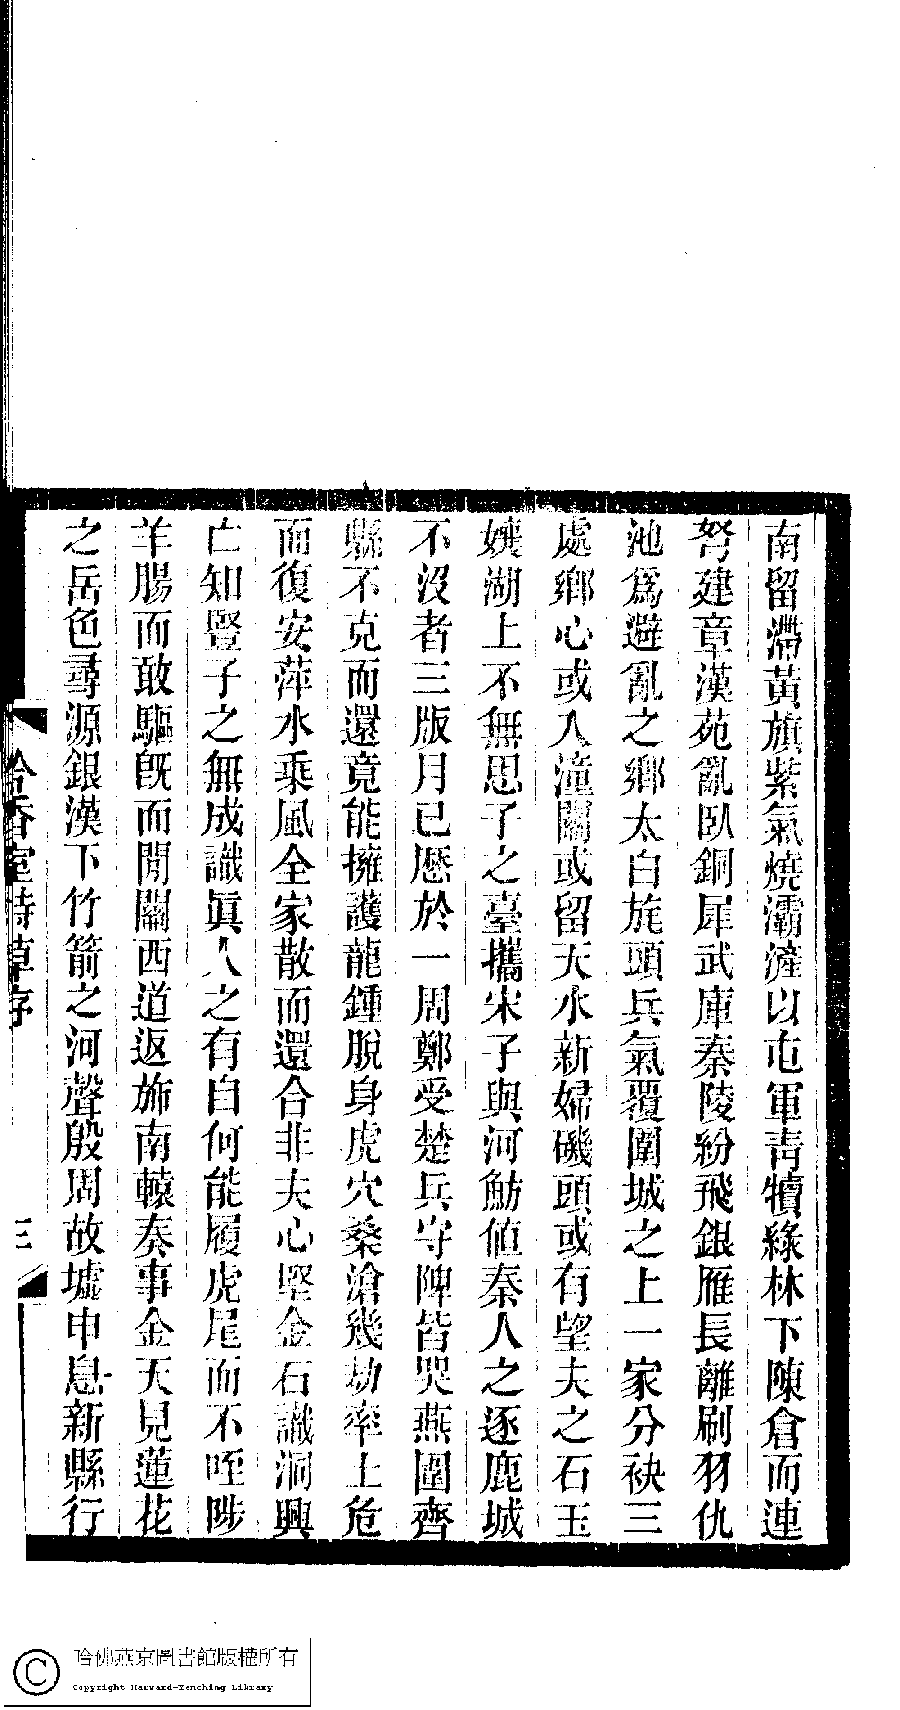 南留滯黃旗紫氣燒灞滻以屯軍靑犢綠林下陳倉而連
弩建章漢苑亂臥銅犀武庫秦陵紛飛銀雁長離刷羽仇
池爲避亂之鄉太白旄頭兵氣覆圍城之上一家分袂三
處鄉心或入潼關或留天水新婦磯頭或有望夫之石玉
孃湖上不無思子之臺攜宋子與河魴値秦人之逐鹿城
不沒者三版月已歷於一周鄭受楚兵守陴皆哭燕圍齊
縣不克而還竟能擁護龍鍾脫身虎穴桑滄幾劫率土危
而復安萍水乘風全家散而還合非夫心堅金石識洞興
亡知豎子之無成識眞人之有自何能履虎尾而不咥陟
羊腸而敢驅旣而閒關西道返旆南轅奏事金天見蓮花
之岳色尋源銀漢下竹箭之河聲殷周故墟申息新縣行
香室詩草序
三
哈佛燕京圖書館版權所有
Copyright Harvard-Yenching Library